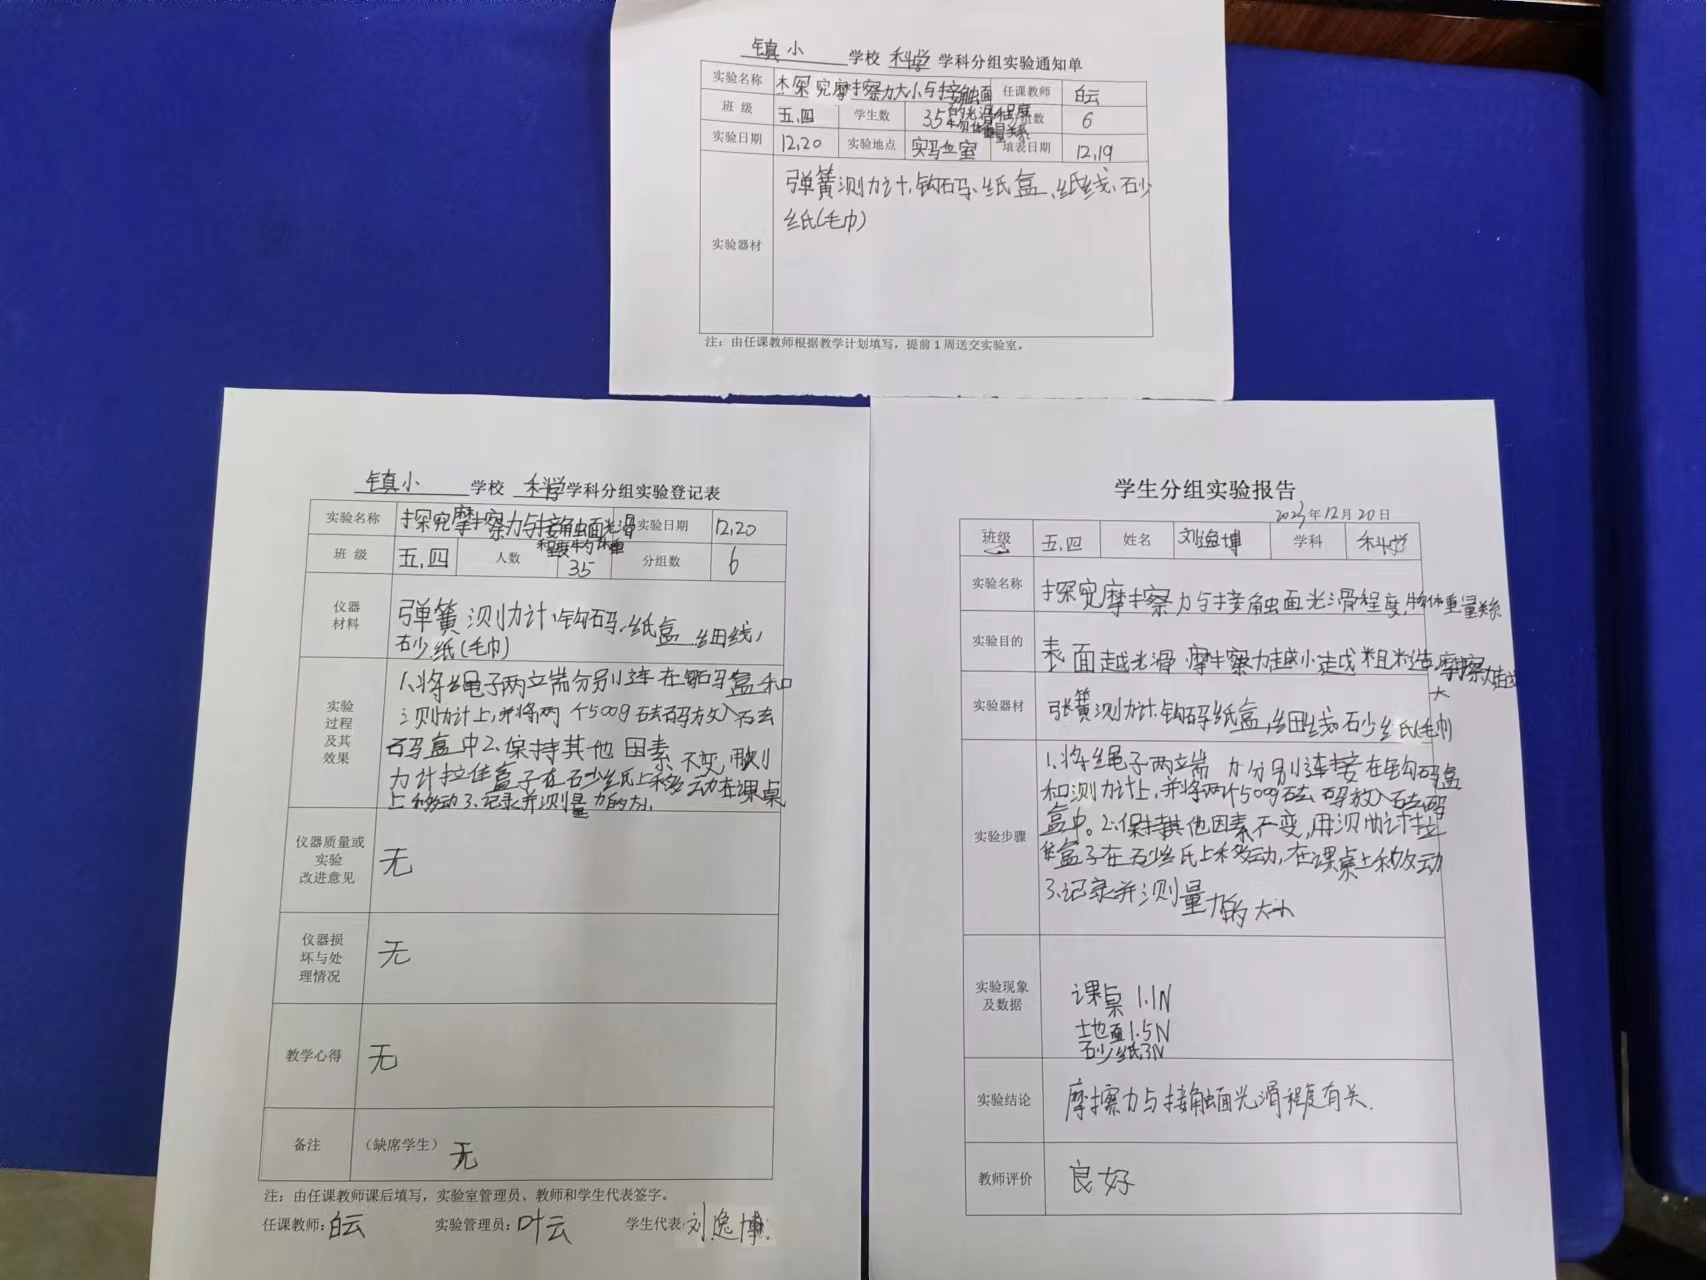 镇小 学校 科学 学科分组实验通知单
实验名称 探究摩擦力大小与接触面的光滑程度物体重量关系 任课教师 白云
班 级 五.四 学生数 35 分组数 6
实验日期 12.20 实验地点 实验室 填表日期 12.19
实验器材
弹簧测力计.钩码.纸盒、细线、砂
纸(毛巾)
注：由任课教师根据教学计划填写，提前1周送交实验室。
镇小 学校 科学 学科分组实验登记表
实验名称 探究摩擦力与接触面光滑程度物体重 实验日期 12.20
班 级 五.四 人数 35 分组数 6
仪器
材料
弹簧测力计.钩码.纸盒 细线,
砂纸(毛巾)
实验
过程
及其
效果
1.将绳子两端分别连在钩码盒和
测力计上,并将两个500g砝码放入砝
码盒中2.保持其他因素不变,用测
力计拉住盒子在砂纸上移动在课桌
上移动3.记录并测量力的大小.
仪器质量或
实验
改进意见
无
仪器损
坏与处
理情况
无
教学心得 无
备注 （缺席学生） 无
注：由任课教师课后填写，实验室管理员、教师和学生代表签字。
任课教师：白云 实验管理员：叶云 学生代表：刘逸博
学生分组实验报告
2023年12月20日
班级 五.四 姓名 刘逸博 学科 科学
实验名称 探究摩擦力与接触面光滑程度,物体重量关系
实验目的 表面越光滑 摩擦力越小越粗糙,摩擦力越
大
实验器材 弹簧测力计.钩码纸盒,细线 砂纸(毛巾)
实验步骤
1.将绳子两端 分别连接在钩码盒
和测力计上,并将两个500g砝码放入砝码
盒中。2.保持其他因素不变,用测力计拉
住盒子在砂纸上移动,在课桌上移动
3.记录并测量力的大小
实验现象
及数据
课桌 1.1N
地面1.5N
砂纸3N
实验结论 摩擦力与接触面光滑程度有关.
教师评价 良好